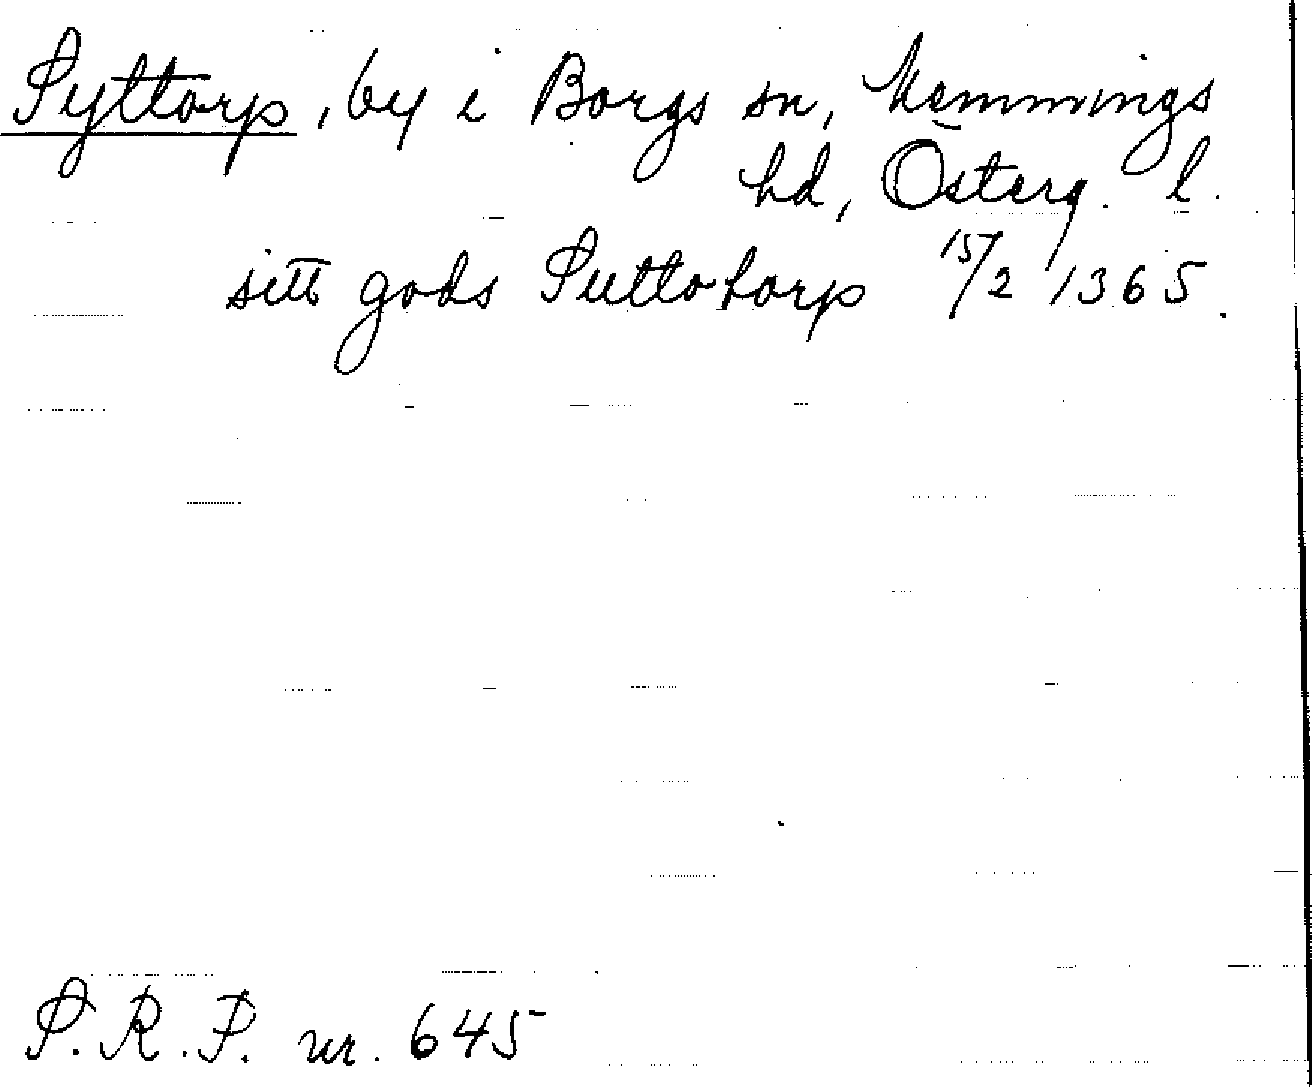 Syttorp, by i Borgs sn, Memmings
hd, Österg. l.
sitt gods Suttohorp 15/2 1365.
S.R.P. nr. 645